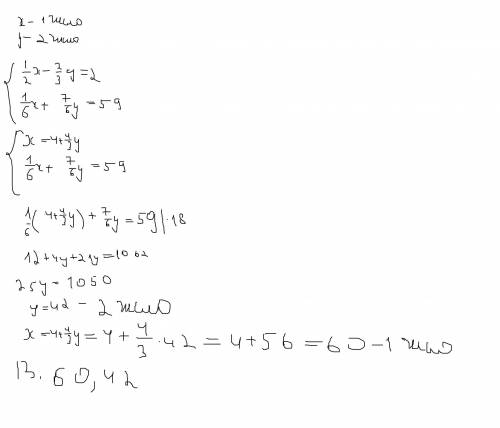 x - 1 число
y - 2 число
{ 1/2 x - 2/3 y = 2
1/6 x + 7/6 y = 59
{ x = 4 + 4/3 y
1/6 x + 7/6 y = 59
1/6 ( 4 + 4/3 y ) + 7/6 y = 59 | · 18
12 + 4y + 21y = 1062
25y = 1050
y = 42 - 2 число
x = 4 + 4/3 y = 4 + 4/3 · 42 = 4 + 56 = 60 - 1 число
В. 60, 42